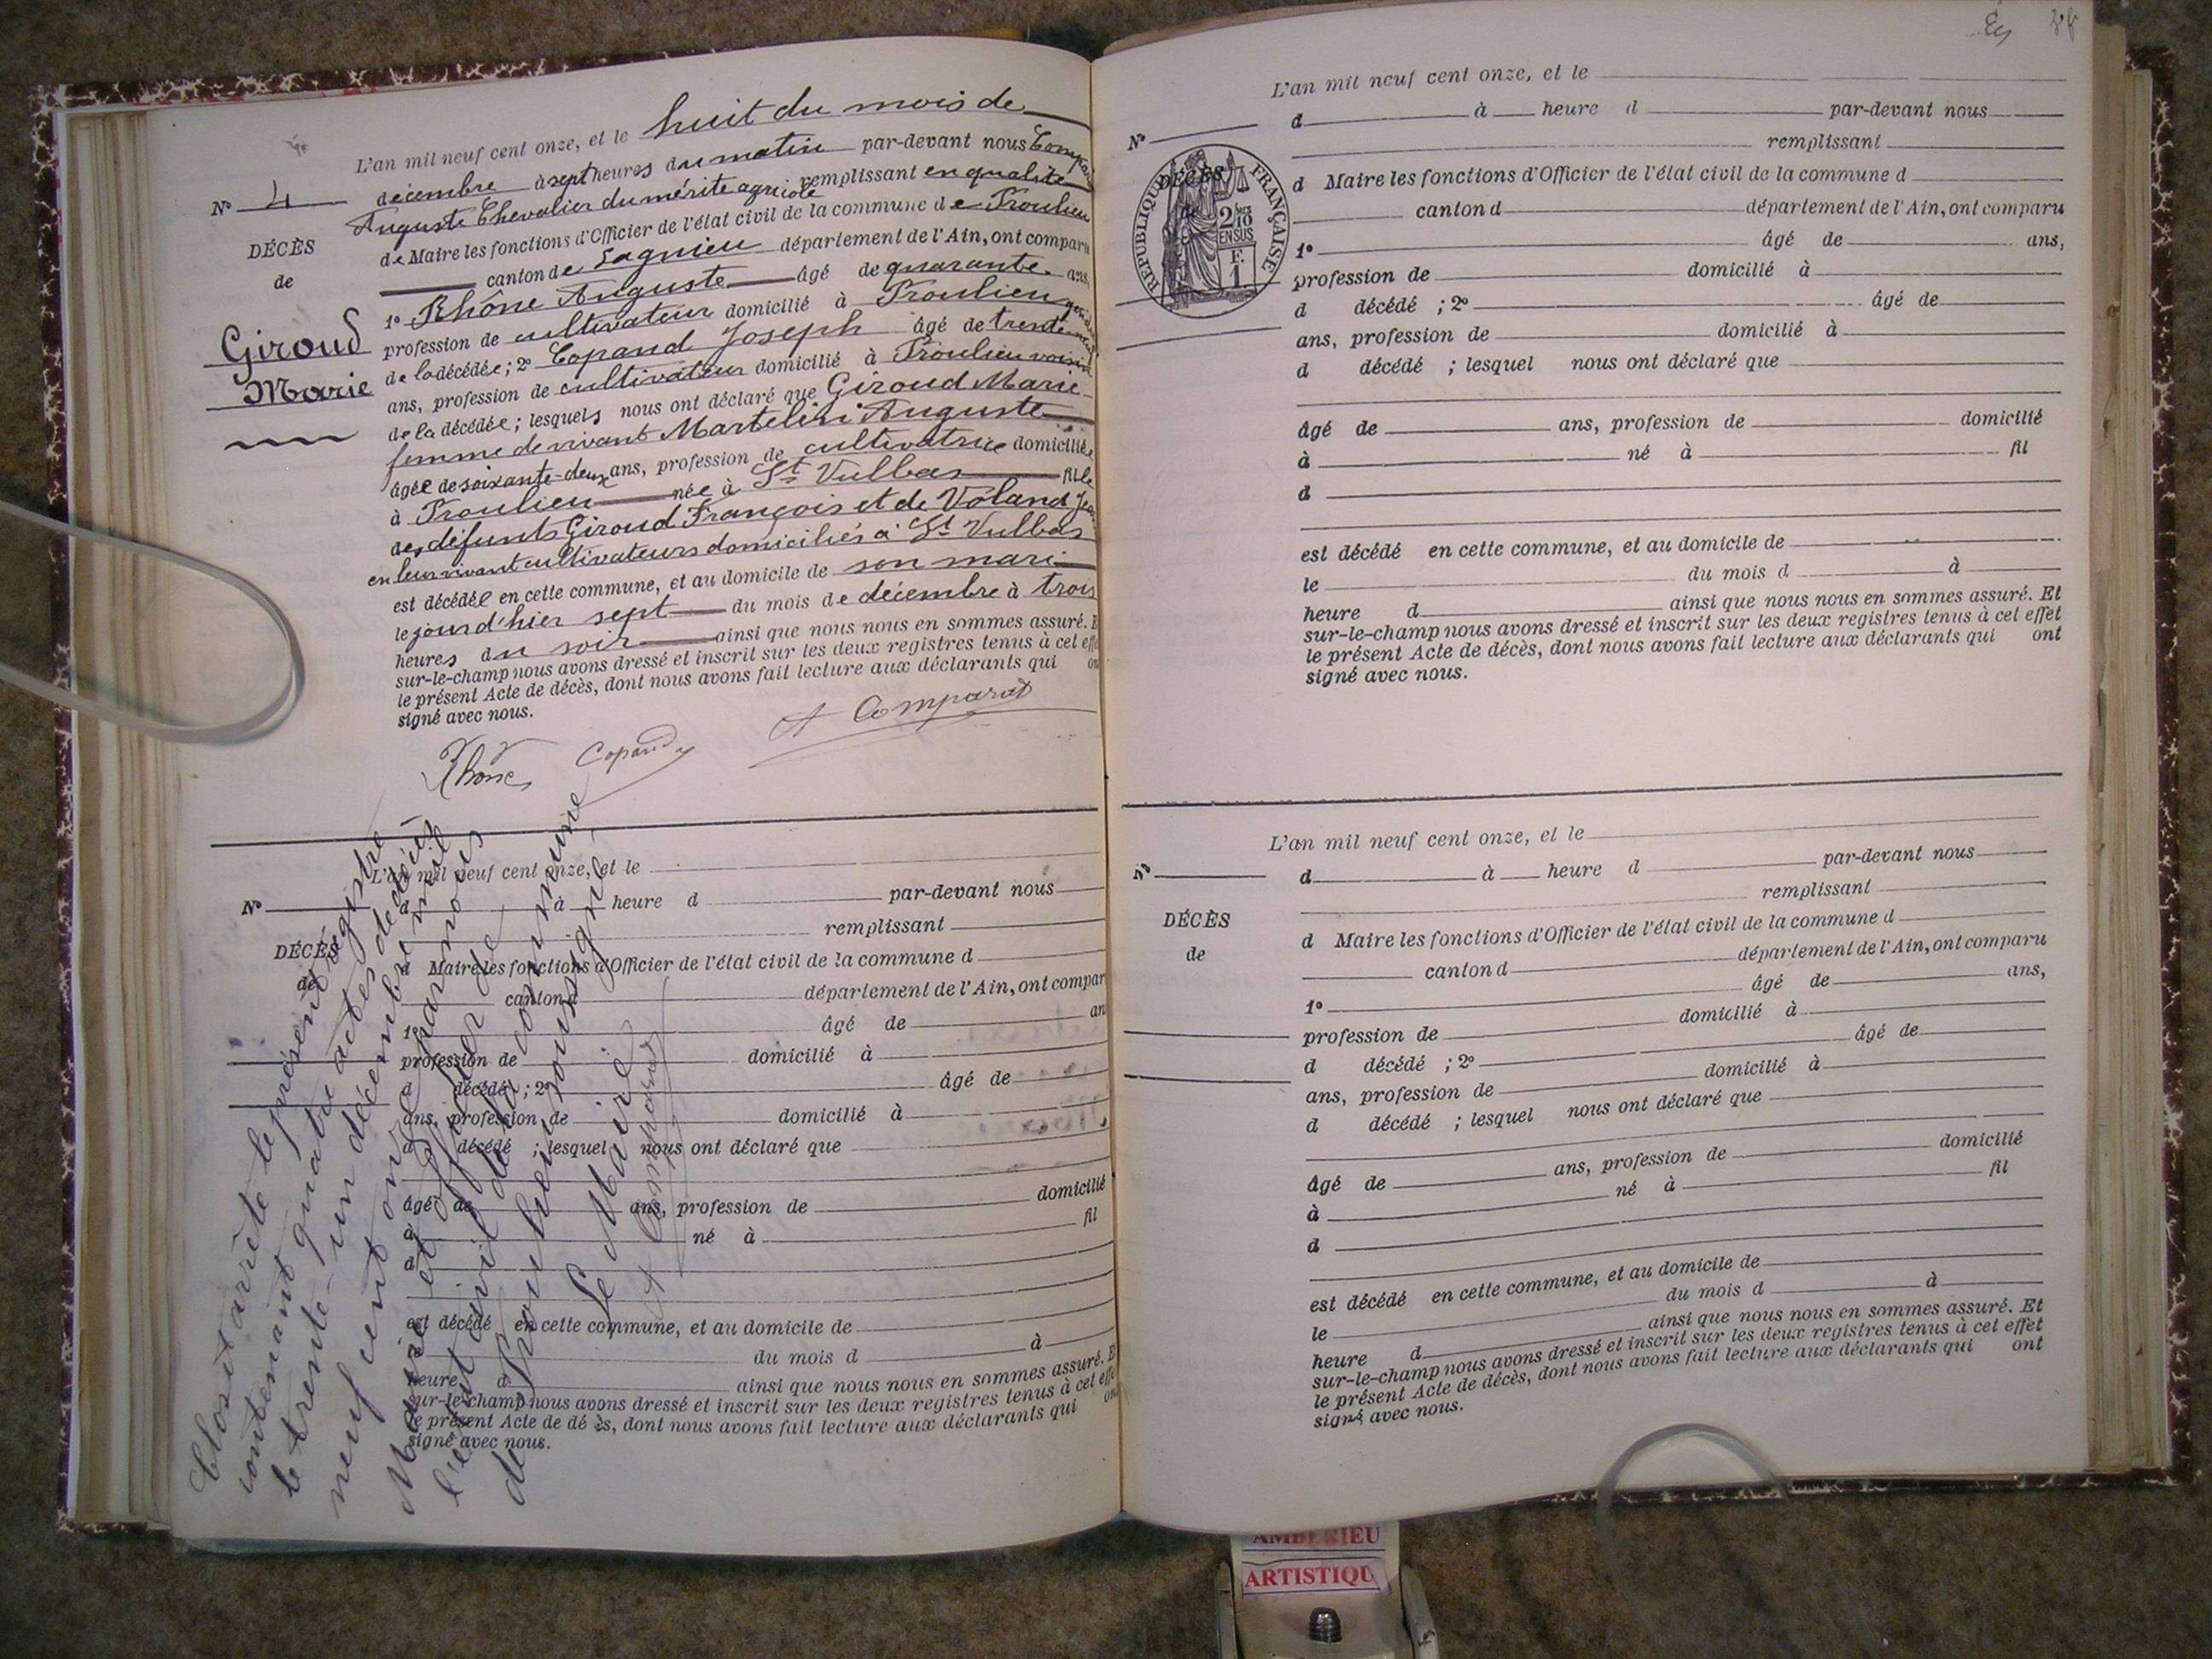 L'an mil neuf cent onze, et le huit du mois de
décembre à sept heures du matin par-devant nous Compar
Auguste Chevalier du mérite agricole remplissant en qualité
de Maire les fonctions d'Officier de l'état civil de la commune de Proulieu
canton de Lagnieu département de l'Ain, ont comparu
1° Rhône Auguste âgé de quarante ans,
profession de cultivateur domicilié à Proulieu
de la décédée ; 2° Copand Joseph âgé de trente
ans, profession de cultivateur domicilié à Proulieu voisin
de la décédée ; lesquels nous ont déclaré que Giroud Marie
femme de vivant Martelin Auguste
âgée de soixante-deux ans, profession de cultivatrice domiciliée
à Proulieu née à St Vulbas fille
des défunts Giroud François et de Voland
en leur vivant cultivateurs domiciliés à St Vulbas
est décédée en cette commune, et au domicile de son mari
le jour d'hier sept du mois de décembre à trois
heures du soir ainsi que nous nous en sommes assuré. E
sur-le-champ nous avons dressé et inscrit sur les deux registres tenus à cet effe
le présent Acte de décès, dont nous avons fait lecture aux déclarants qui on
signé avec nous.
N° 4
DÉCÈS
de
Giroud
Marie
Rhône Copand A Comparat
L'an mil neuf cent onze, et le
N°
d à heure d par-devant nous
remplissant
DÉCÈS
de
d Maire les fonctions d'Officier de l'état civil de la commune d
canton d département de l'Ain, ont compar
1° âgé de an
profession de domicilié à
d décédé ; 2° âgé de
ans, profession de domicilié à
d décédé ; lesquel nous ont déclaré que
âgé de ans, profession de domicilié
à né à fil
d
est décédé en cette commune, et au domicile de
le du mois d à
heure d ainsi que nous nous en sommes assuré. E
sur-le-champ nous avons dressé et inscrit sur les deux registres tenus à cet effe
le présent Acte de dé ès, dont nous avons fait lecture aux déclarants qui on
signé avec nous.
Clos et arrêté le présent registre
contenant quatre actes de décès
le trente-un décembre mil
neuf cent onze par nous
Maire et officier de
l'état civil de la commune
de Proulieu soussigné
Le Maire
A Comparat
L'an mil neuf cent onze, et le
N°
d à heure d par-devant nous
remplissant
DÉCÈS
de
RÉPUBLIQUE FRANÇAISE
2 MES
10
EN SUS
F.
1
d Maire les fonctions d'Officier de l'état civil de la commune d
canton d département de l'Ain, ont comparu
1° âgé de ans,
profession de domicilié à
d décédé ; 2° âgé de
ans, profession de domicilié à
d décédé ; lesquel nous ont déclaré que
âgé de ans, profession de domicilié
à né à fil
d
est décédé en cette commune, et au domicile de
le du mois d à
heure d ainsi que nous nous en sommes assuré. Et
sur-le-champ nous avons dressé et inscrit sur les deux registres tenus à cet effet
le présent Acte de décès, dont nous avons fait lecture aux déclarants qui ont
signé avec nous.
L'an mil neuf cent onze, et le
N°
d à heure d par-devant nous
remplissant
DÉCÈS
de
d Maire les fonctions d'Officier de l'état civil de la commune d
canton d département de l'Ain, ont comparu
1° âgé de ans,
profession de domicilié à
d décédé ; 2° âgé de
ans, profession de domicilié à
d décédé ; lesquel nous ont déclaré que
âgé de ans, profession de domicilié
à né à fil
d
est décédé en cette commune, et au domicile de
le du mois d à
heure d ainsi que nous nous en sommes assuré. Et
sur-le-champ nous avons dressé et inscrit sur les deux registres tenus à cet effet
le présent Acte de décès, dont nous avons fait lecture aux déclarants qui ont
signé avec nous.
AMBERIEU
ARTISTIQU